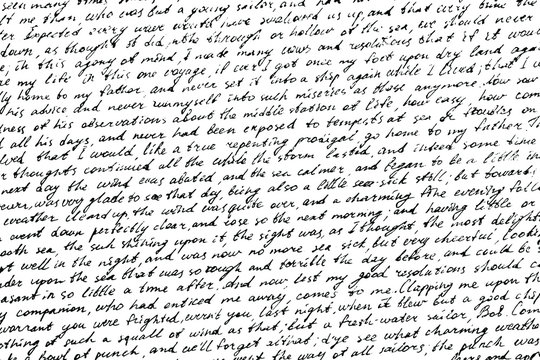 seen many times
t me than, who was but a young sailor, and had
er. Expected every wave would have swallowed us up, and that every time the
down, as thought it did, wthe through or hollow of the sea, we should never
e; in this agony of mind, I made many vows and resolutions that if it woul
re my life in this one voyage, if ever I got once my foot upon dry land again
ly home to my father, and never set it into a ship again while I lived; that I w
his advice and never runmyself into such miseries as these anymore. Now saw
ness of his observations about the middle station of life, how easy, how com
d all his days, and never had been exposed to tempests at sea or troubles on
lved that I would, like a true repenting prodigal, go home to my father. Th
r thoughts continued all the while the storm lasted, and indeed some time
next day the wind was abated, and the sea calmer, and I began to be a little in
was very glade to see that day, being also a little sea-sick still; but towards
weather cleard up, the wind was quite over, and a charming fine evening foll
went down perfectly clear, and rose so the next morning; and having little or
ooth sea, the sun shining upon it, the sight was, as I thought, the most delight
pt well in the night, and was now no more sea sick, but very cheerful, looki
nder upon the sea that was so rough and terrible the day before, and could be s
asant in so little a time after. And now, lest my good resolutions should c
y companion, who had enticed me away, comes to me. Clapping me upon th
warrant you were frighted, wernt you, last night, when it blew but a good chip
othing of such a squall of wind as that; but a fresh-water sailor, Bob. Com
e a bowl of punch, and we'll forget athat; d'ye see what charming weathe
went the way of all sailors; the punch was